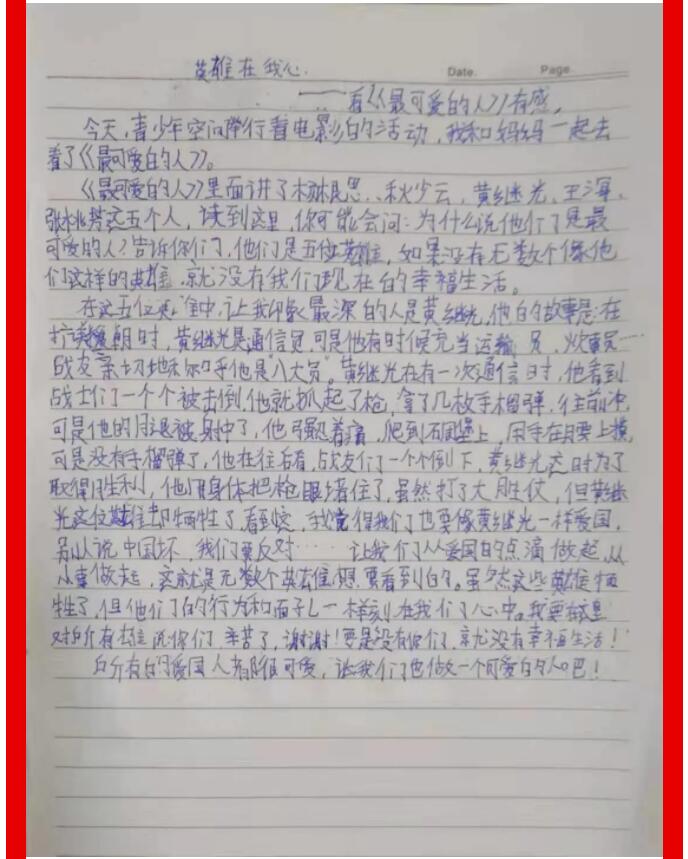 英雄在我心
Date.
Page
——看《最可爱的人》有感
今天,青少年空间举行看电影的活动,我和妈妈一起去
看了《最可爱的人》。
《最可爱的人》里面讲了 思、 少云,黄继光、王海、
张桃芳这五个人,读到这里,你可能会问:为什么说他们是最
可爱的人?告诉你们,他们是五位英雄,如果没有无数个像他
们这样的英雄,就没有我们现在的幸福生活。
在这五位英雄中,让我印象最深的人是黄继光,他的故事是:在
抗美援朝时,黄继光是通信员,可是他有时候充当运输员,炊事员……
战友亲切地称呼他是“八大员”。黄继光在有一次通信时,他看到
战士们一个个被击倒,他就抓起了枪,拿了几枚手榴弹,往前冲,
可是他的腿被射中了,他强忍着痛,爬到石堡上,用手在腰上摸,
可是没有手榴弹了,他在往后看,战友们一个个倒下,黄继光这时为了
取得胜利,他用身体把枪眼堵住了,虽然打了大胜仗,但黄继
光这位英雄却牺牲了,看到这,我觉得我们也要像黄继光一样爱国,
别人说中国坏,我们要反对……让我们从爱国的点滴做起,从
小事做起,这就是无数个英雄想要看到的。虽然这些英雄牺
牲了,但他们的行为和面孔一样刻在我们心中。我要在这里
对所有英雄说你们辛苦了,谢谢!要是没有你们,就没有幸福生活!
所有的爱国人都很可爱,让我们也做一个可爱的人吧!